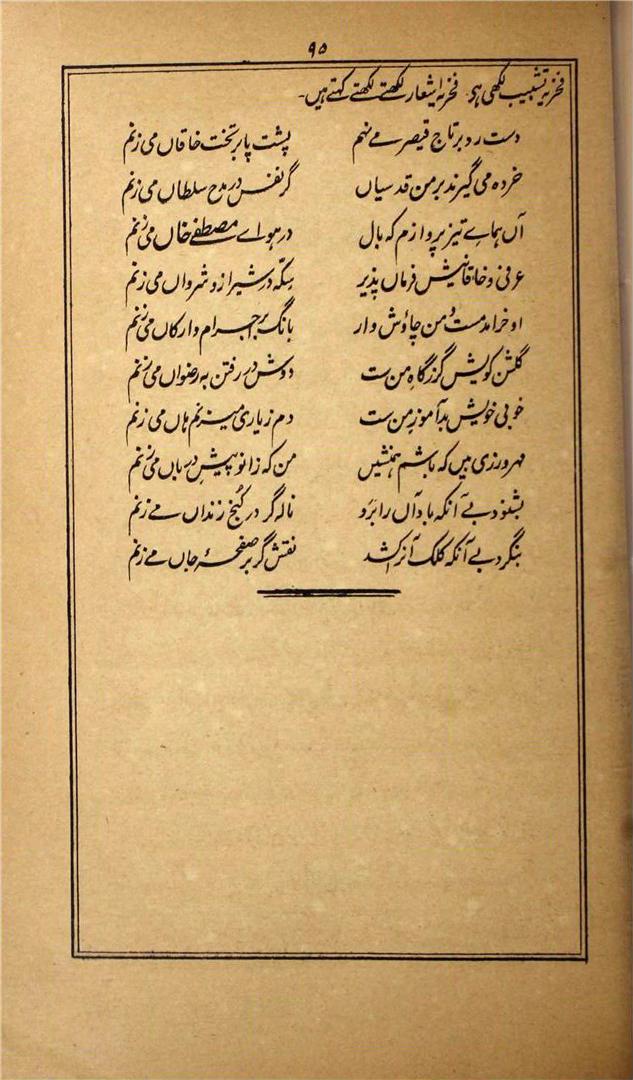 ۹۵
فخریہ تشبیب لکھی ہی۔ فخریہ اشعار لکھتے لکھتے کہتے ہیں۔
دست رد بر تاج قیصر مے نہم پشت پا بر تخت خاقاں می زنم
خردہ می گیرند بر من قدسیاں گر نفس در مدح سلطاں می زنم
آں ہماے تیز پروازم کہ بال در ہواے مصطفےٰ خاں می زنم
عرفی و خاقانیش فرماں پذیر سکّہ در شیراز و شرواں می زنم
او خرامد مست و من چاؤش وار بانگ بر اجرام و ارکاں می زنم
گلشن کویش گزرگاہِ من ست دوش در رفتن بہ رضواں می زنم
خوبی خویش بدآموز من ست دم ز یاری میزنم ہاں می زنم
مہرورزی بیں کہ باشم ہمنشیں من کہ زانو پیش درباں می زنم
بشنود بے آنکہ باد آں را برَد نالہ گر در کُنج زنداں مے زنم
بنگرد بے آنکہ کلک آنرا کشد نقش گر بر صفحۂ جاں مے زنم